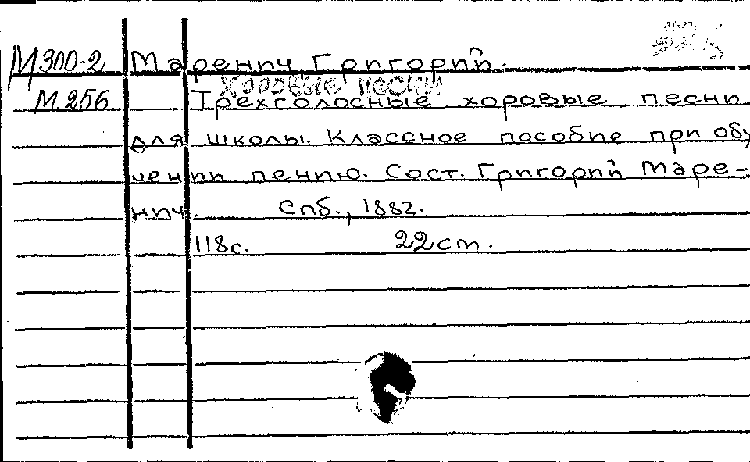 М300-2 Маренич Григорий.
хоровые песни
М.256 Трехголосные хоровые песни
для школы. Классное пособие при обу
чении пению. Сост. Григорий Маре-
нич. Спб., 1882.
118с. 22 см.